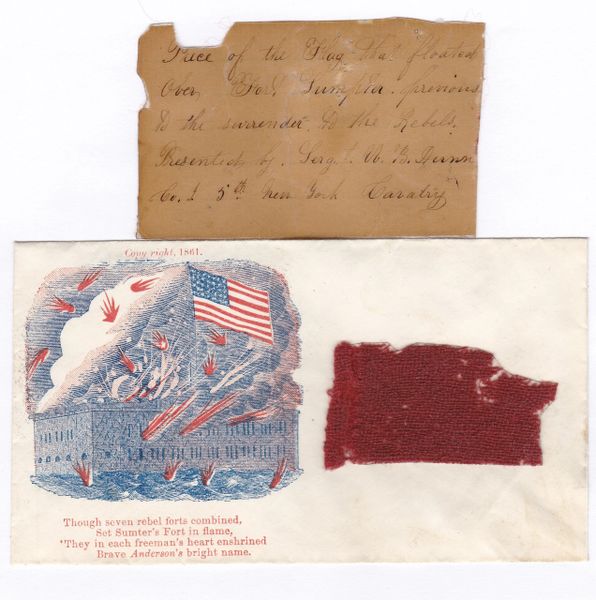 Piece of the Flag that floated
Over Fort Sumpter. previous
to the surrender to the Rebels.
Presented by. Sergt. W. B.
Co. I 5th New York Cavalry
Copy right, 1861.
Though seven rebel forts combined,
Set Sumter's Fort in flame,
'They in each freeman's heart enshrined
Brave Anderson's bright name.